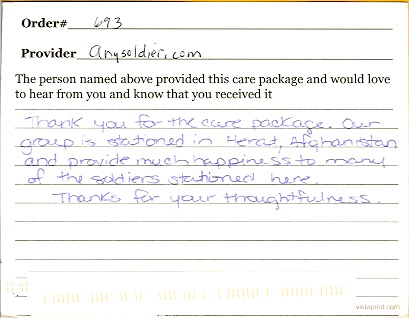 Order# 693
Provider anysoldier.com
The person named above provided this care package and would love
to hear from you and know that you received it
Thank you for the care package. Our
group is stationed in Herat, Afghanistan
and provide much happiness to many
of the soldiers stationed here.
Thanks for your thoughtfulness.
vistaprint.com